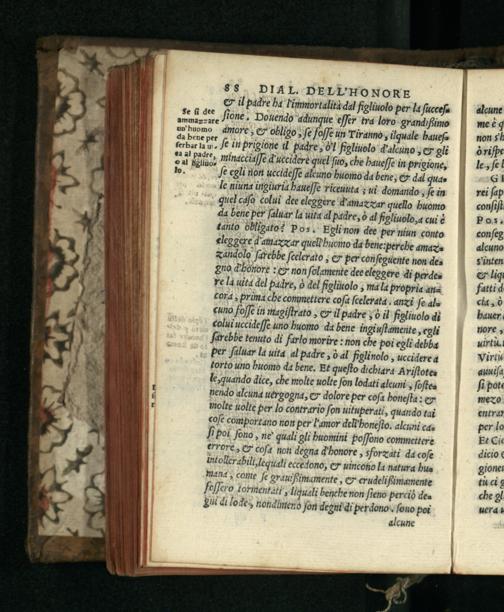 88 DIAL. DELL'HONORE
Se si dee
ammazzare
un'huomo
da bene per
serbar la ui-
ta al padre,
o al figliuo-
lo.
& il padre ha l'immortalità dal figliuolo per la succes-
sione. Douendo adunque esser tra loro grandissimo
amore, & obligo, se fosse un Tiranno, ilquale haues-
se in prigione il padre, ò'l figliuolo d'alcuno, & gli
minacciasse d'uccidere quel suo, che hauesse in prigione,
se egli non uccidesse alcuno huomo da bene, & dal qua-
le niuna ingiuria hauesse riceuuta; ui domando, se in
quel caso colui dee eleggere d'amazzar quello huomo
da bene per saluar la uita al padre, ò al figliuolo, a cui è
tanto obligato? Pos. Egli non dee per niun conto
eleggere d'amazzar quell'huomo da bene: perche amaz-
zandolo sarebbe scelerato, & per conseguente non de-
gno d'honore: & non solamente dee eleggere di perde-
re la uita del padre, ò del figliuolo, ma la propria an-
cora, prima che commettere cosa scelerata. anzi se al-
cuno fosse in magistrato, & il padre, ò il figliuolo di
colui uccidesse uno huomo da bene ingiustamente, egli
sarebbe tenuto di farlo morire: non che poi egli debba
per saluar la uita al padre, ò al figliuolo, uccidere a
torto uno huomo da bene. Et questo dichiara Aristote-
le, quando dice, che molte uolte son lodati alcuni, soste-
nendo alcuna uergogna, & dolore per cosa honesta: &
molte uolte per lo contrario son uituperati, quando tai
cose comportano non per l'amor dell'honesto. alcuni ca-
si poi sono, ne' quali gli huomini possono commettere
errore, & cosa non degna d'honore, sforzati da cose
intollerabili, lequali eccedono, & uincono la natura hu-
mana, come se grauissimamente, & crudelissimamente
fossero tormentati, liquali benche non sieno perciò de-
gni di lode, nondimeno son degni di perdono. sono poi
alcune